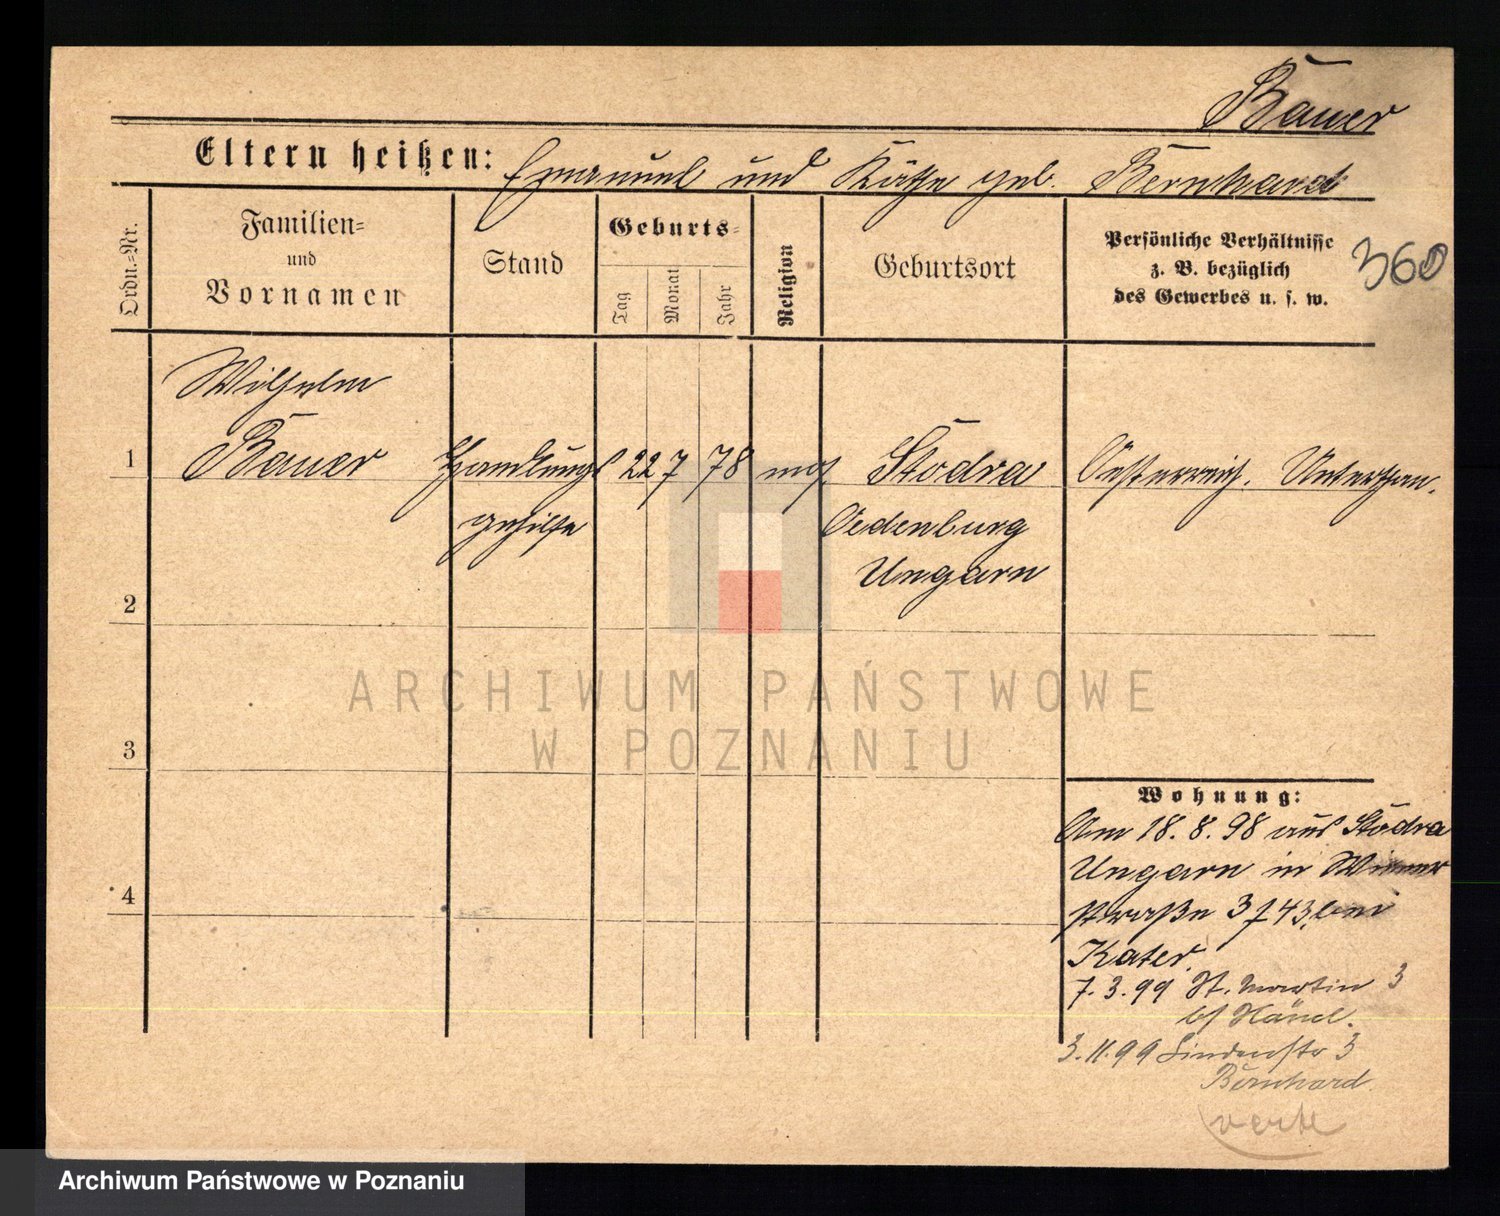 Bauer
Eltern heißen: Emanuel und Käthe geb. Bernhardt
Ordn.-Nr.
Familien-
und
Vornamen
Stand
Geburts-
Tag
Monat
Jahr
Religion
Geburtsort
Persönliche Verhältnisse
z. B. bezüglich
des Gewerbes u. s. w.
360
Wilhelm
1 Bauer Handlungs 22 7 78 mos. Stodra Oesterreich. Unterthan.
gehilfe Oedenburg
Ungarn
2
ARCHIWUM PAŃSTWOWE
W POZNANIU
3
4
Wohnung:
Am 18. 8. 98 aus Stodra
Ungarn in Wiener
straße 3 bei
Kater.
7. 3. 99 St. Martin 3
b/ Händ.
3. 11. 99 Lindenstr 3
Bernhard.
verte
Archiwum Państwowe w Poznaniu